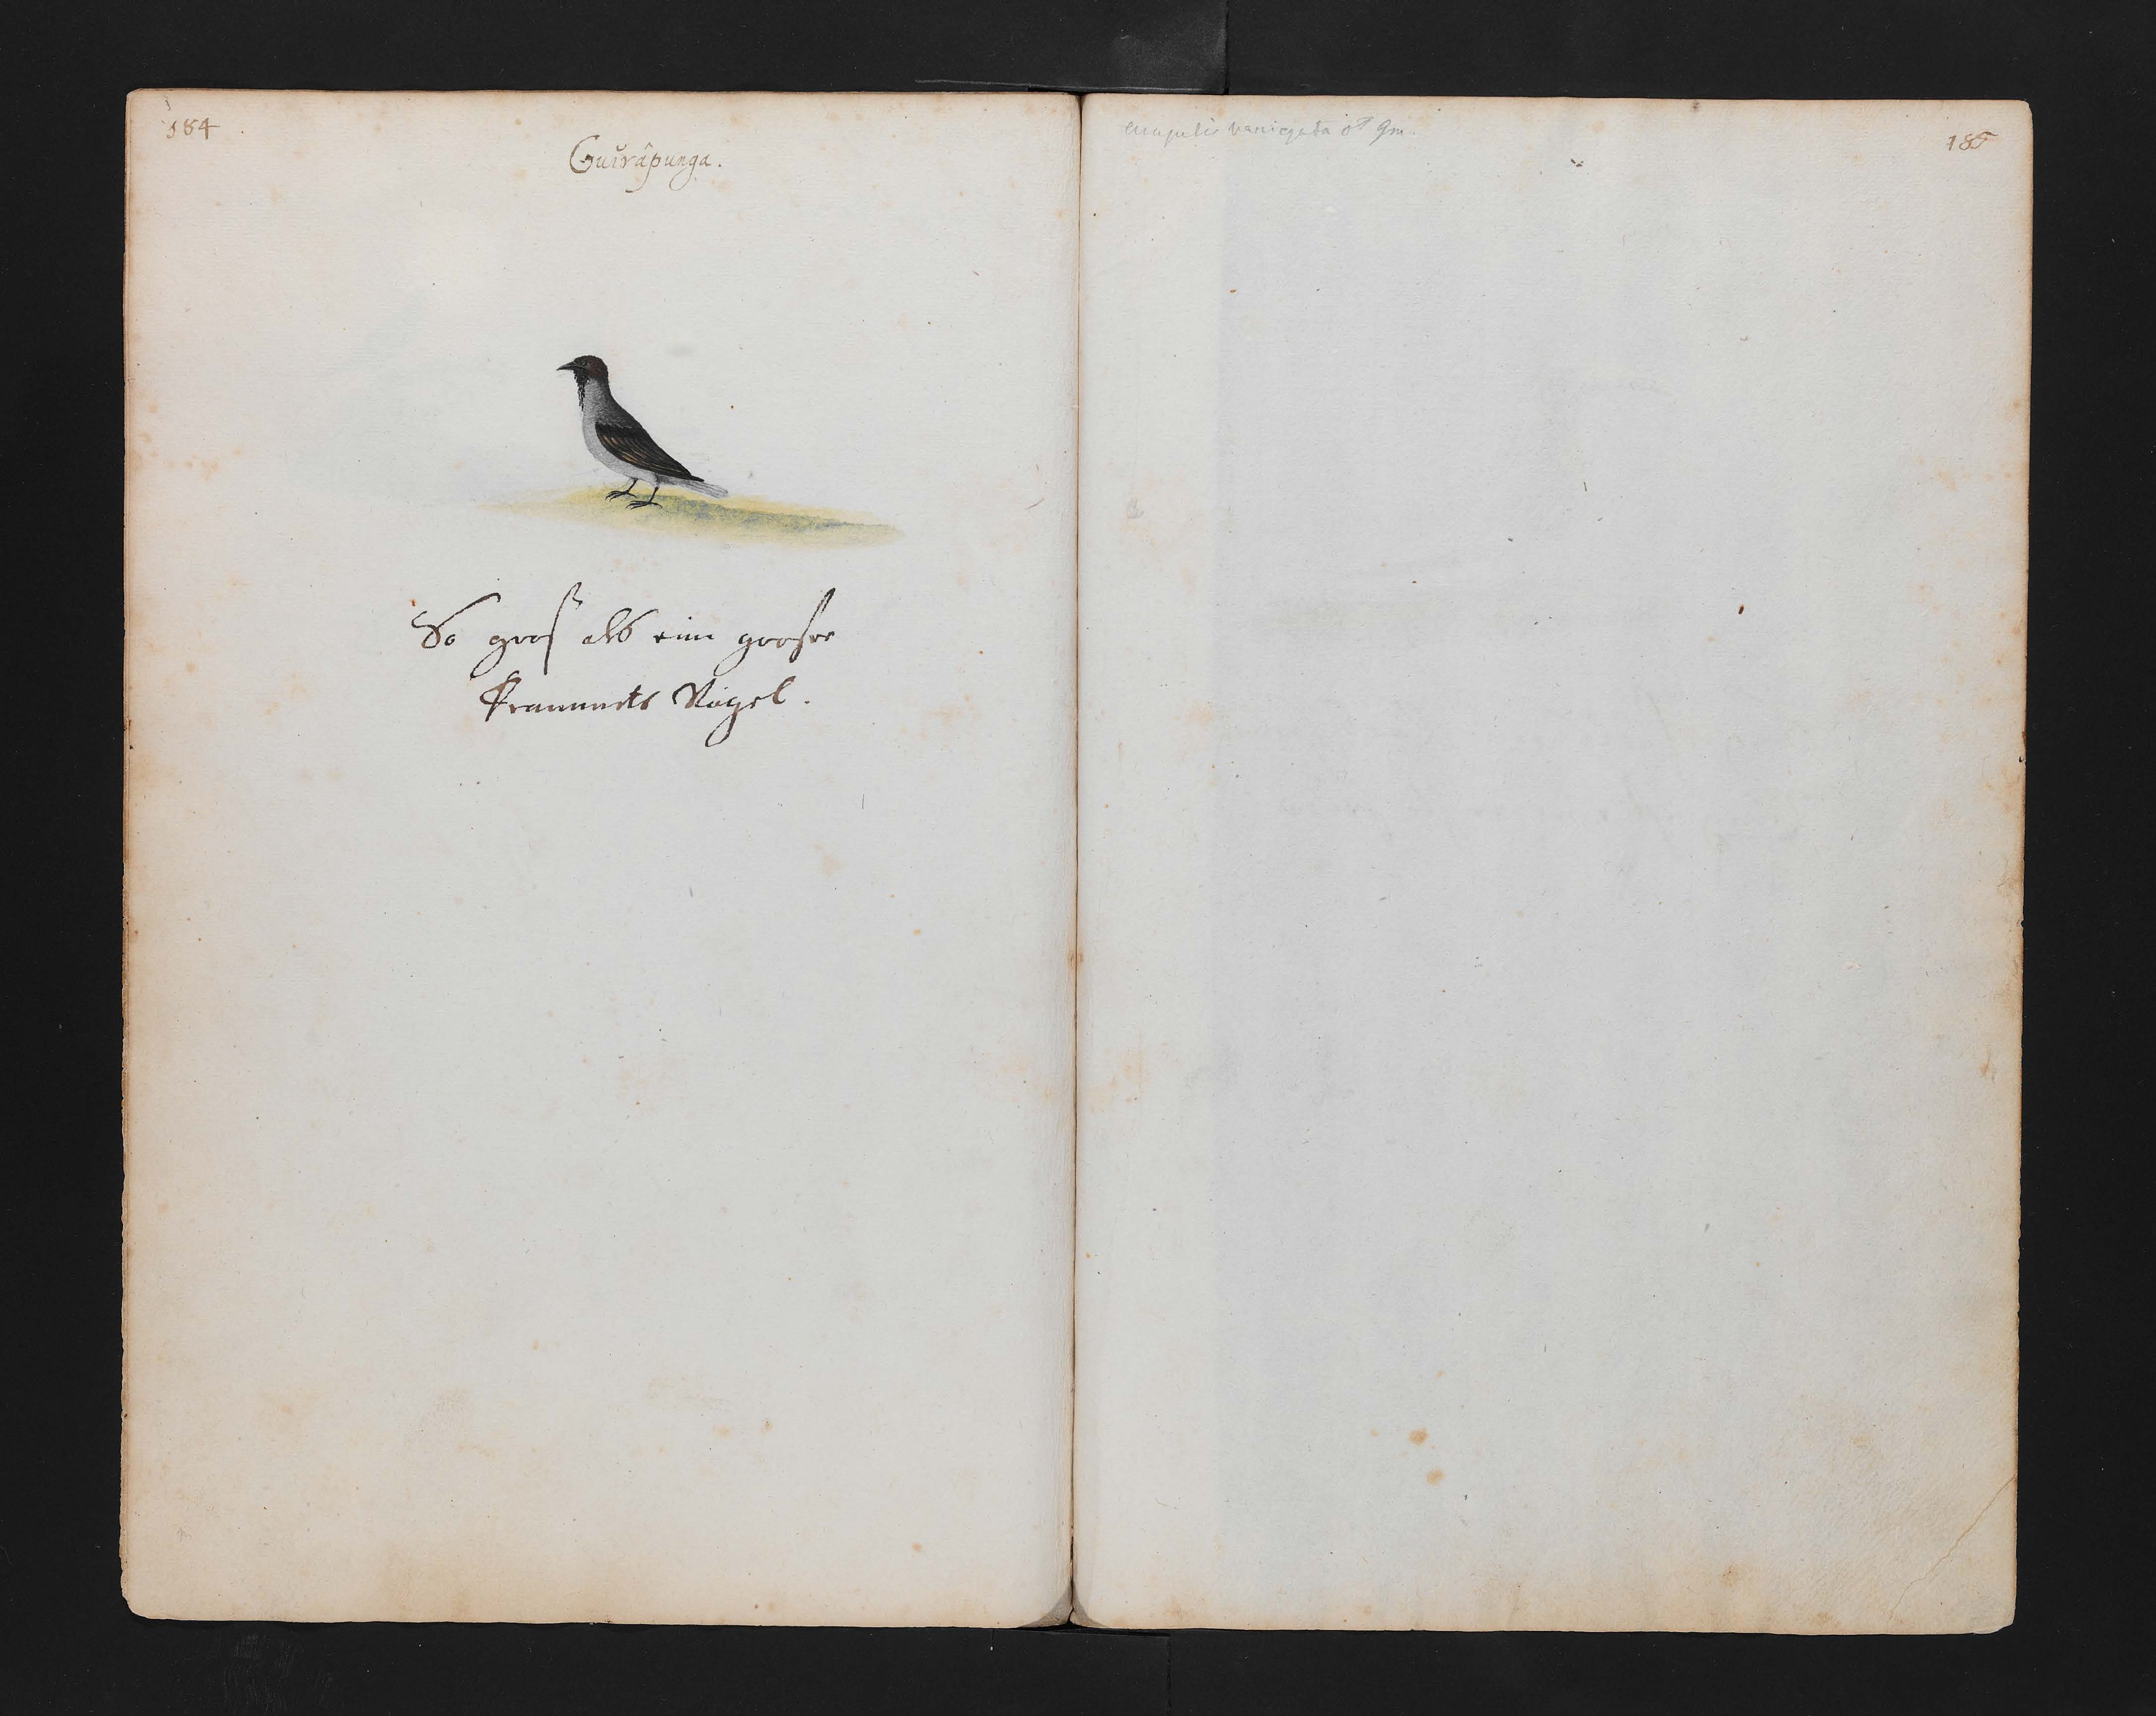 184
Guirâpunga.
So groß als eine grosse
Krammets Vogel.
variegata ♂ Gm.
185